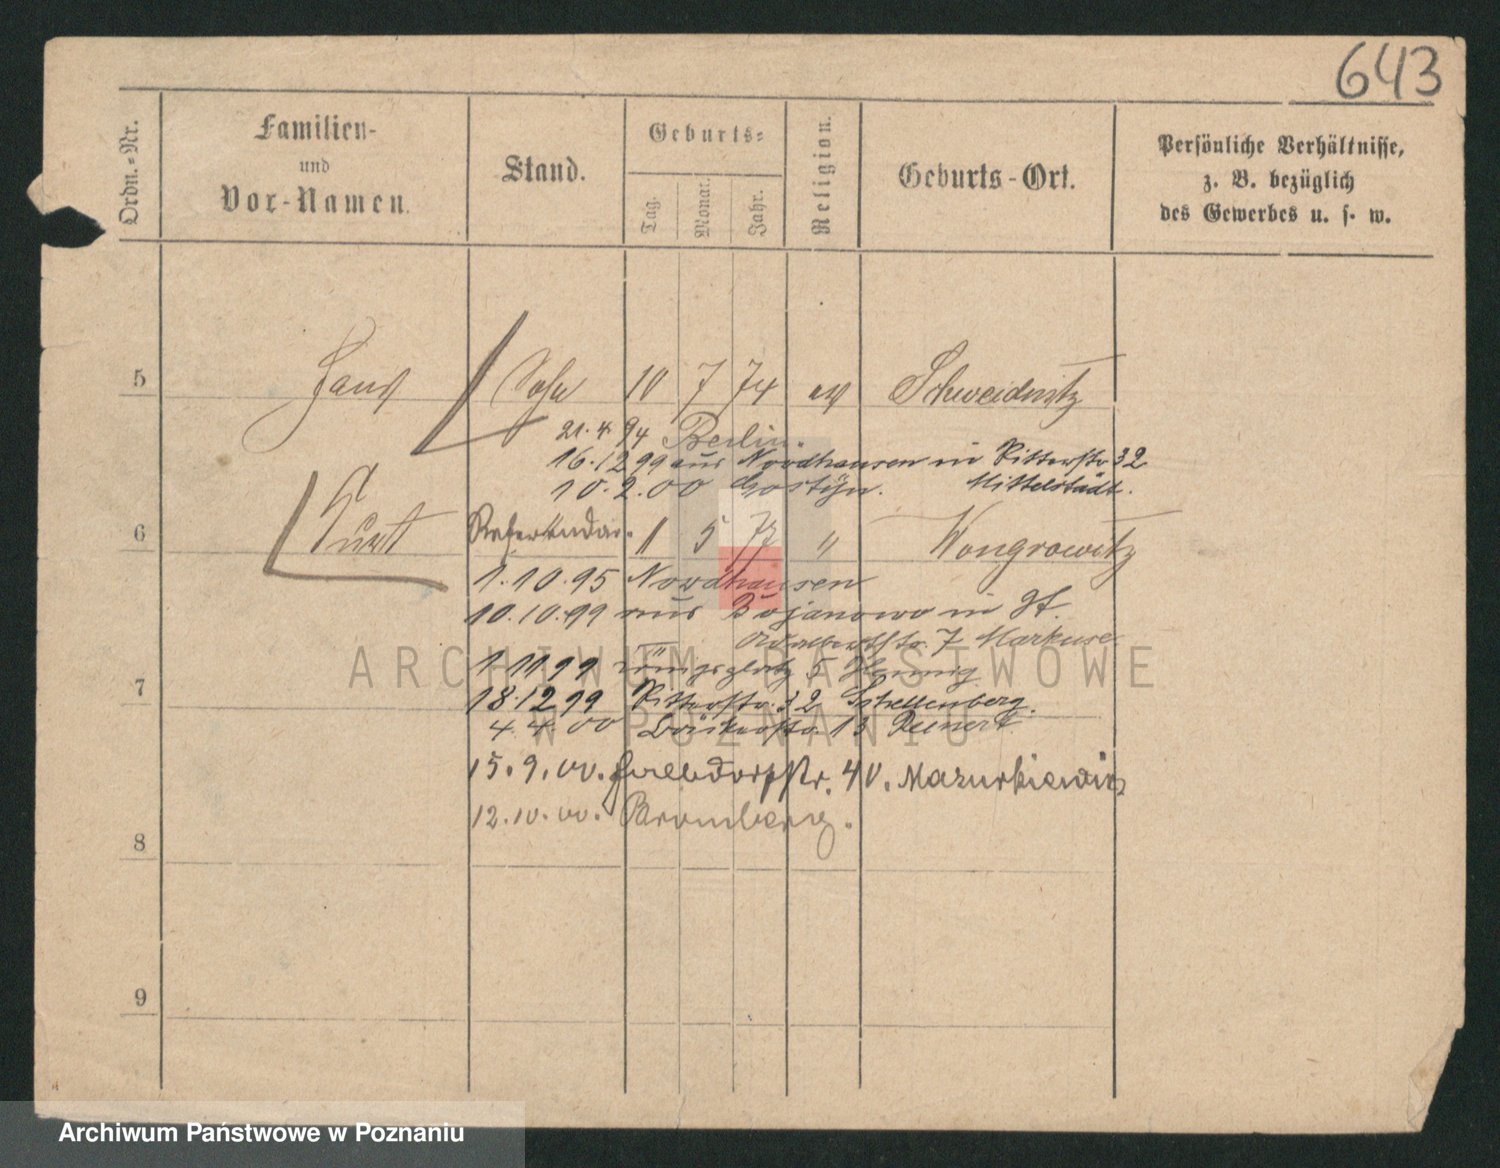 643
Ordn.-Nr.
Familien-
und
Vor-Namen.
Stand.
Geburts-
Tag.
Monat.
Jahr.
Religion.
Geburts-Ort.
Persönliche Verhältnisse,
z. B. bezüglich
des Gewerbes u. s. w.
5 Hans Sohn 10 7 74 ev Schweidnitz
21.4.94 Berlin.
16.12.99 aus Nordhausen in Ritterstr 32
Mittelstädt.
10.2.00 Gostyn.
6 Curt Referendar. 1 5 77 " Wongrowitz
1.10.95 Nordhausen
10.10.99 aus Bojanowo in St.
7 Markuse
1.11.99 Königsplatz 5 Hennig
7
18.12.99 Ritterstr. 32 Schellenberg.
4.4.00 13 Reinert
15.9.00. 40. Mazurkiewicz
12.10.00. Bromberg.
8
9
ARCHIWUM PAŃSTWOWE
W POZNANIU
Archiwum Państwowe w Poznaniu